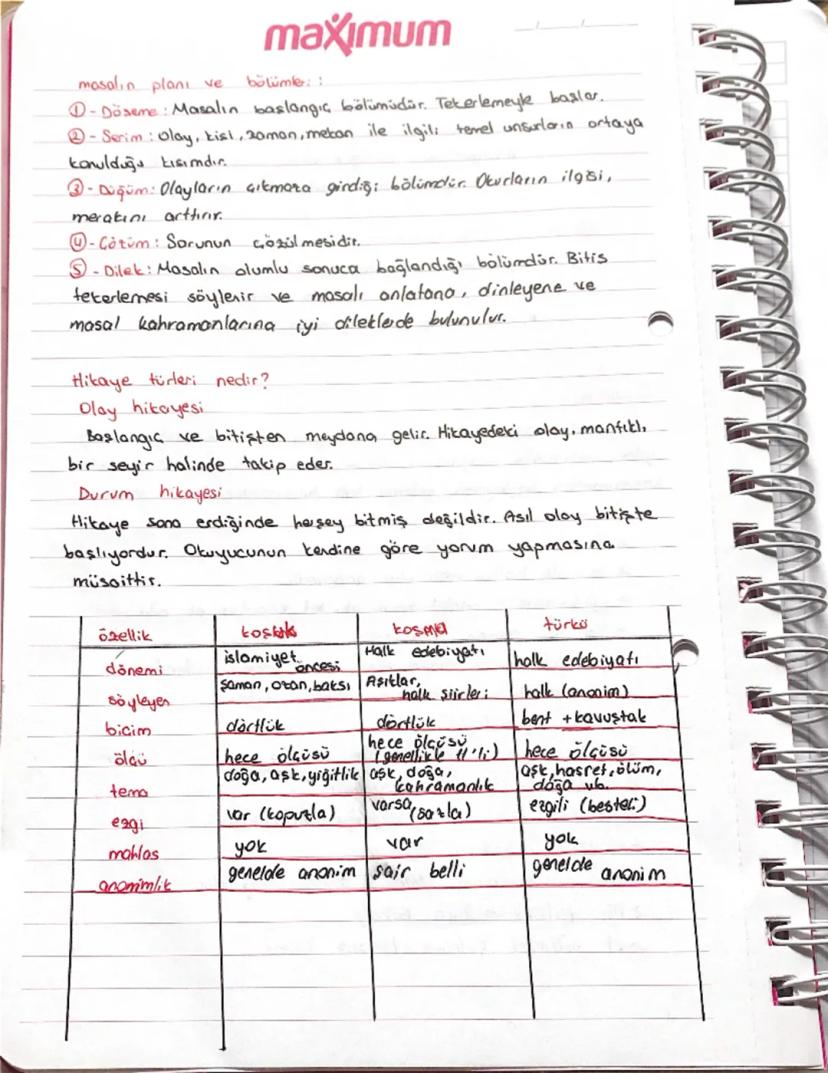 maximum
masalın planı ve bölümleri:
① - Döşeme: Masalın başlangıç bölümüdür. Tekerlemeyle başlar.
② - Serim: Olay, kişi, zaman, mekan ile ilgili temel unsurların ortaya
konulduğu kısımdır.
③ - Düğüm: Olayların çıkmaza girdiği bölümdür. Okurların ilgisi,
merakını arttırır.
④ - Çözüm: Sorunun çözülmesidir.
⑤ - Dilek: Masalın olumlu sonuca bağlandığı bölümdür. Bitiş
tekerlemesi söylenir ve masalı anlatana, dinleyene ve
masal kahramanlarına iyi dileklerde bulunulur.
Hikaye türleri nedir?
Olay hikayesi
Başlangıç ve bitişten meydana gelir. Hikayedeki olay, mantıklı
bir seyir halinde takip eder.
Durum hikayesi
Hikaye sona erdiğinde herşey bitmiş değildir. Asıl olay bitişte
başlıyordur. Okuyucunun kendine göre yorum yapmasına
müsaittir.
özellik koşuk koşma türkü
dönemi islamiyet öncesi Halk edebiyatı halk edebiyatı
söyleyen şaman, ozan, baksı Aşıklar, halk şiirleri halk (anonim)
biçim dörtlük dörtlük bent + kavuştak
ölçü hece ölçüsü hece ölçüsü (genellikle 11'li) hece ölçüsü
tema doğa, aşk, yiğitlik aşk, doğa, kahramanlık aşk, hasret, ölüm, doğa vb.
ezgi var (kopuzla) varsa (sazla) ezgili (besteli)
mahlas yok var yok
anonimlik genelde anonim şair belli genelde anonim